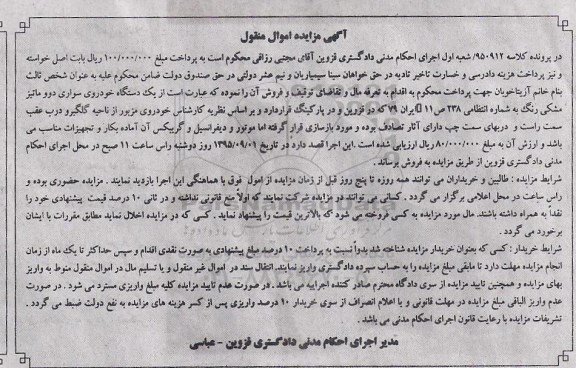 آگهی مزایده اموال منقول
در پرونده کلاسه ۹۵۰۹۱۲/ شعبه اول اجرای احکام مدنی دادگستری قزوین آقای مجتبی رزاقی محکوم است به پرداخت مبلغ ۱۰۰/۰۰۰/۰۰۰ ریال بابت اصل خواسته
و نیز پرداخت هزینه دادرسی و خسارت تاخیر تادیه در حق خواهان سینا سیمیاریان و نیم عشر دولتی در حق صندوق دولت ضامن محکوم علیه به عنوان شخص ثالث
بنام خانم آزیتاخوبان جهت پرداخت محکوم به اقدام به تعرفه مال و تقاضای توقیف و فروش آن را نموده که عبارت است از یک دستگاه خودروی سواری دوو ماتیز
مشکی رنگ به شماره انتظامی ۲۳۸ ص ۱۱ ایران ۷۹ که در قزوین و در پارکینگ قراردارد و بر اساس نظریه کارشناس خودروی مزبور از ناحیه گلگیرو درب عقب
سمت راست و دربهای سمت چپ دارای آثار تصادف بوده و مورد بازسازی قرار گرفته اما موتور و دیفرانسیل و گیربکس آن آماده بکار و تجهیزات مناسب می
باشد و ارزش آن به مبلغ ۸۰/۰۰۰/۰۰۰ ریال ارزیابی شده است .این اجرا قصد دارد در تاریخ ۱۳۹۵/۰۹/۰۱ روز دوشنبه راس ساعت ۱۱ صبح در محل اجرای احکام
مدنی دادگستری قزوین از طریق مزایده به فروش برساند .
شرایط مزایده : طالبین و خریداران می توانند همه روزه تا پنج روز قبل از زمان مزایده از اموال فوق با هماهنگی این اجرا بازدید نمایند . مزایده حضوری بوده و
راس ساعت در محل اعلامی برگزار می گردد . کسانی می توانند در مزایده شرکت نمایند که اولاً منع قانونی نداشته و در ثانی ۱۰ درصد قیمت پیشنهادی خود را
نقداً به همراه داشته باشند. مال مورد مزایده به کسی فروخته می شود که بالاترین قیمت را پیشنهاد نماید . کسی که در مزایده اخلال نماید مطابق مقررات با ایشان
برخورد می گردد .
شرایط خریدار : کسی که بعنوان خریدار مزایده شناخته شد بدواً نسبت به پرداخت ۱۰ درصد مبلغ پیشنهادی به صورت نقدی اقدام و سپس حداکثر تا یک ماه از زمان
انجام مزایده مهلت دارد تا مابقی مبلغ مزایده را به حساب سپرده دادگستری واریز نمایند. انتقال سند در اموال غیر منقول و یا تسلیم مال در اموال منقول منوط به واریز
بهای مزایده و همچنین تایید مزایده از سوی دادگاه محترم صادر کننده اجراییه می باشد . در صورت عدم تایید مزایده کلیه مبلغ واریزی مسترد می شود . در صورت
عدم واریز الباقی مبلغ مزایده در مهلت قانونی و یا اعلام انصراف از سوی خریدار ۱۰ درصد واریزی پس از کسر هزینه های مزایده به نفع دولت ضبط می گردد .
تشریفات مزایده با رعایت قانون اجرای احکام مدنی می باشد .
مدیر اجرای احکام مدنی دادگستری قزوین - عباسی